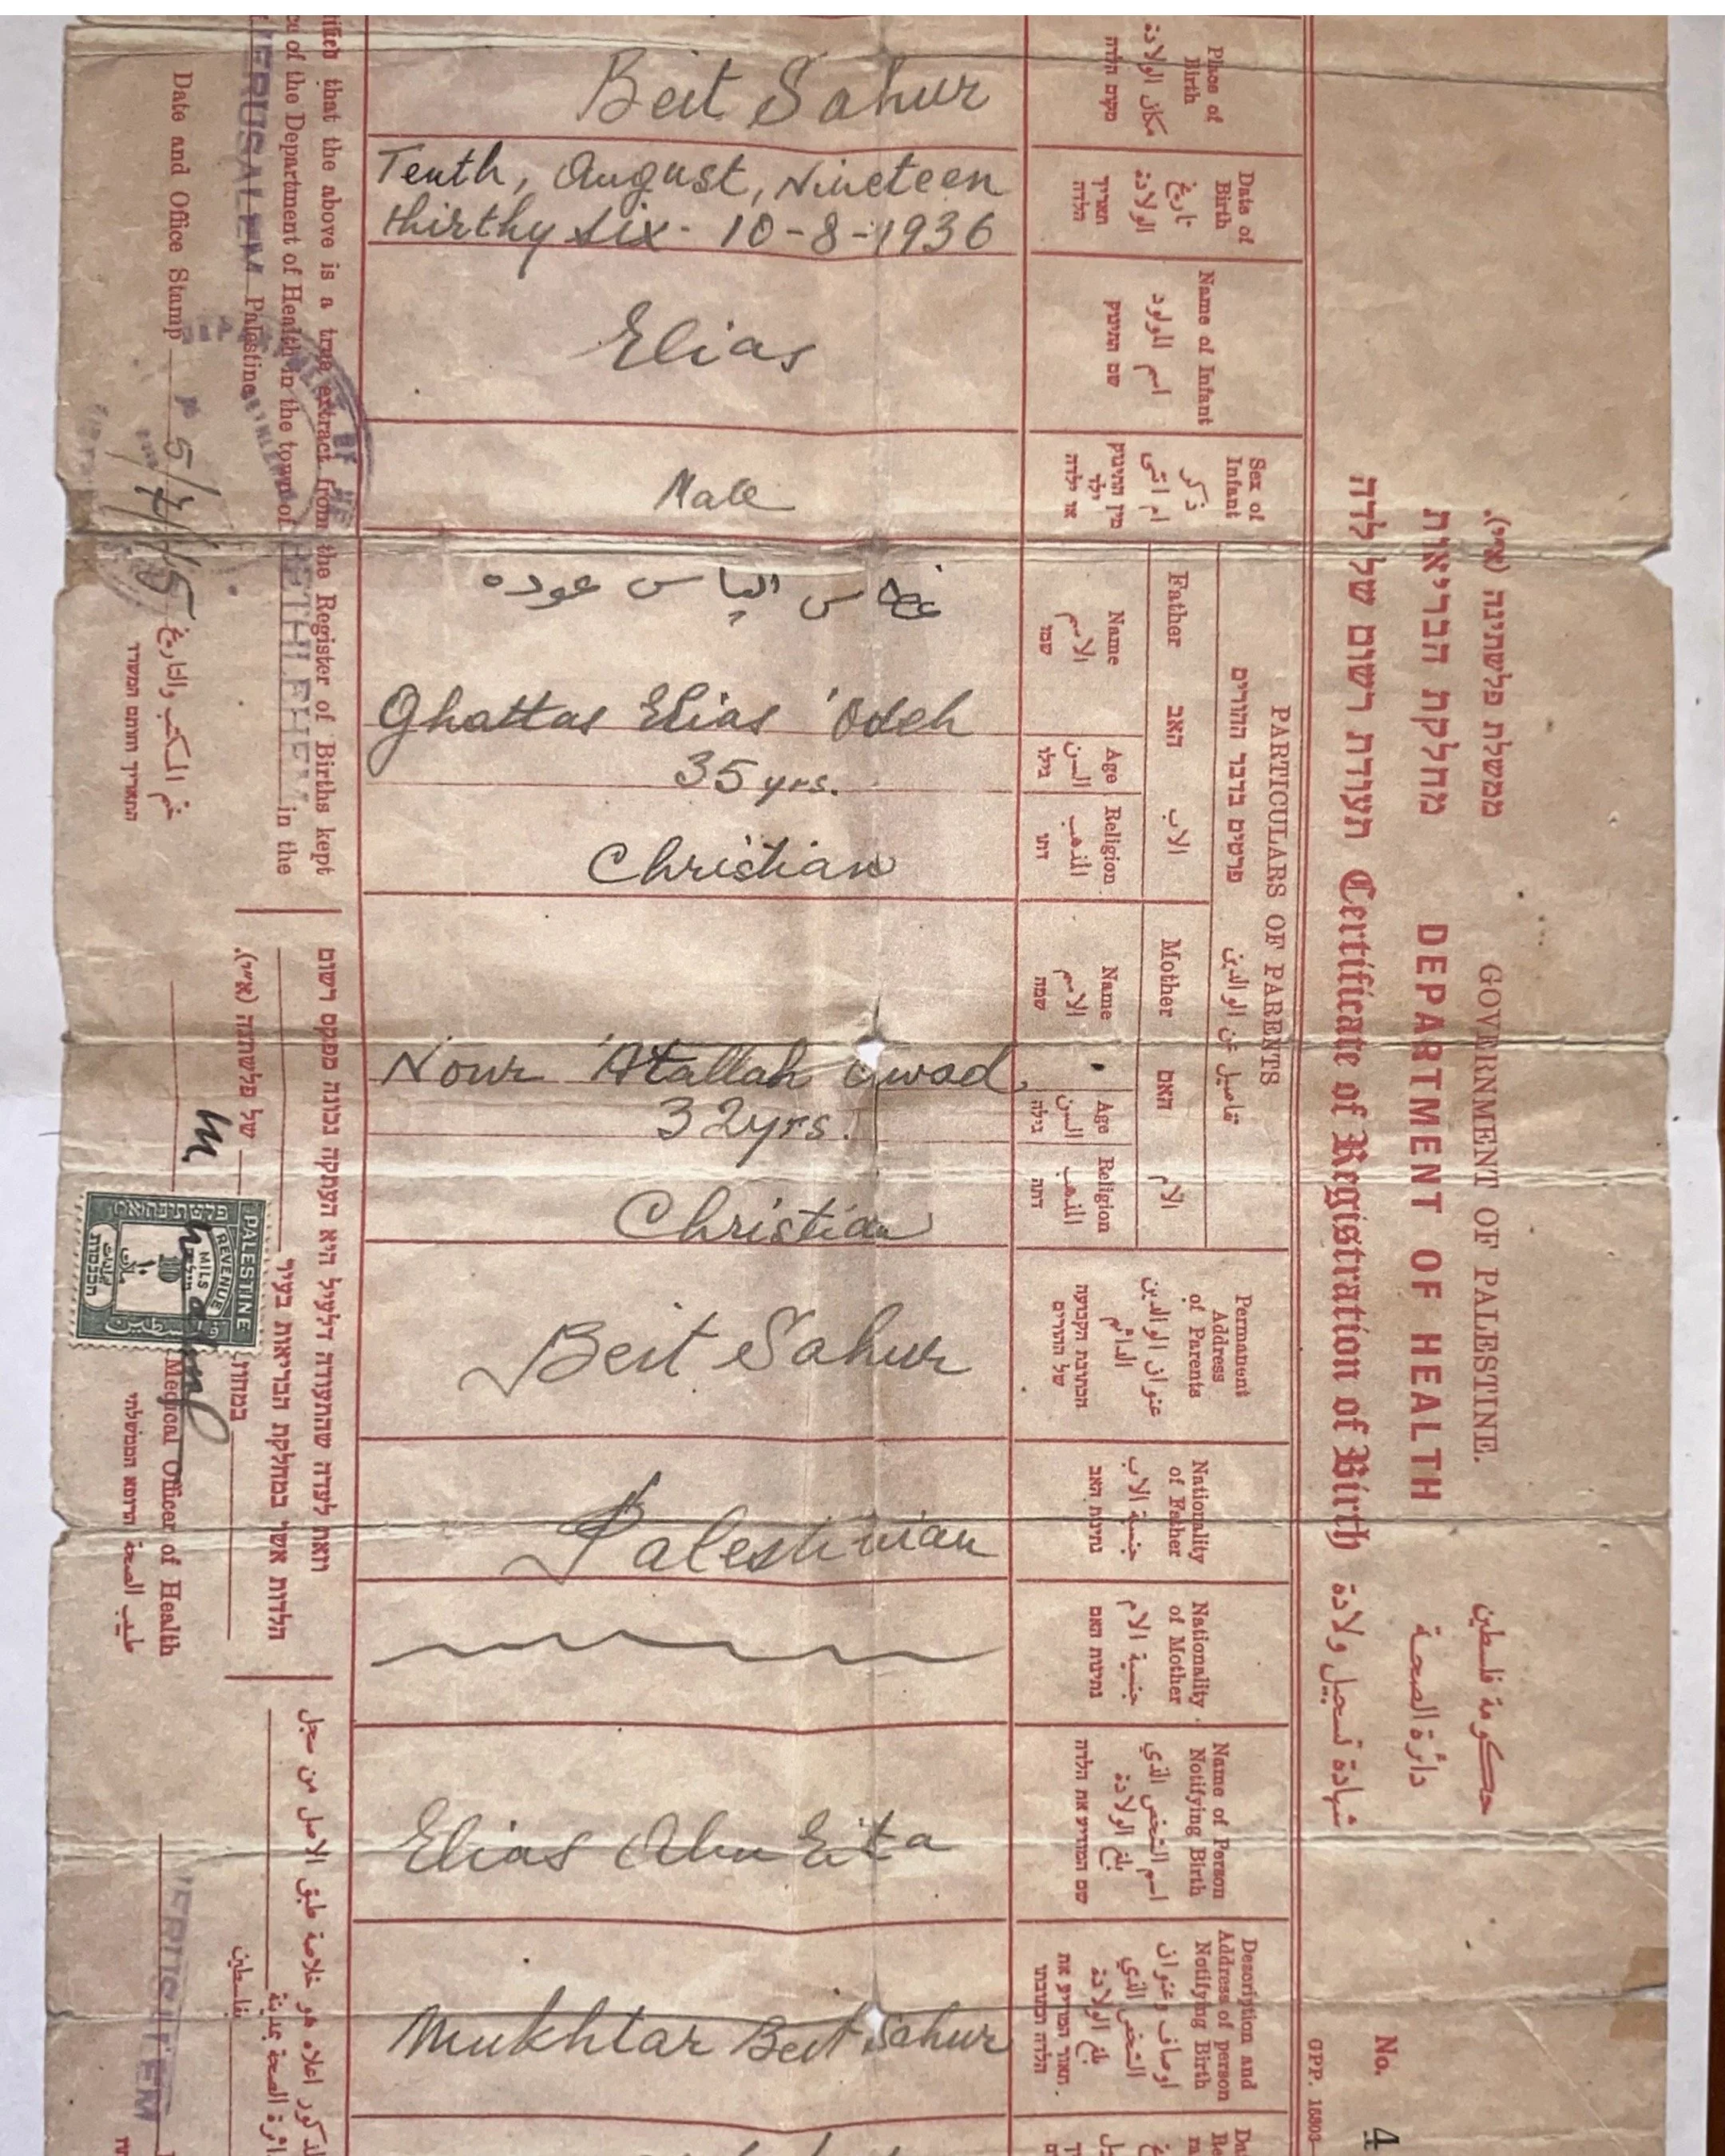 ממשלת פלשתינה (א״י). GOVERNMENT OF PALESTINE. حكومة فلسطين
מחלקת הבריאות DEPARTMENT OF HEALTH دائرة الصحة
תעודת רשום של לדה Certificate of Registration of Birth شهادة تسجيل ولادة
No. 4
GPP. 15803—
Place of
Birth
مكان الولادة
מקום הלדה
Beit Sahur
Date of
Birth
تاريخ
الولادة
תאריך
הלדה
Tenth, August, Nineteen
thirthy six - 10-8-1936
Name of Infant
اسم المولود
שם התינוק
Elias
Sex of
Infant
ذكر
ام انثى
מין התינוק
ילד
או ילדה
Male
PARTICULARS OF PARENTS
פרטים בדבר ההורים تفاصيل عن الوالدين
Father האב الاب
Name
الاسم
שמו
غطاس الياس عوده
Ghattas Elias 'Odeh
Age
السن
גילו
35 yrs.
Religion
المذهب
דתו
Christian
Mother האם الام
Name
الاسم
שמה
Nour 'Atallah Awad
Age
السن
גילה
32 yrs.
Religion
المذهب
דתה
Christian
Permanent
Address
of Parents
عنوان الوالدين
الدائم
הכתובת הקבועה
של ההורים
Beit Sahur
Nationality
of Father
جنسية الاب
נתינות האב
Palestinian
Nationality
of Mother
جنسية الام
נתינות האם
Name of Person
Notifying Birth
اسم الشخص الذي
بلغ الولادة
שם המודיע את הלדה
Elias Abu Eita
Description and
Address of person
Notifying Birth
اوصاف وعنوان
الشخص الذي
بلغ الولادة
תאור המודיע את
הלדה וכתבתו
Mukhtar Beit Sahur
that the above is a true extract from the Register of Births kept
ce of the Department of Health in the town of BETHLEHEM in the
JERUSALEM Palestine
Date and Office Stamp 5/7/45
ختم المكتب والتاريخ
התאריך וחותם המשרד
וזאת לעדה שהתעודה דלעיל היא העתקה נכונה מפנקס רשום
הלדות אשר במחלקת הבריאות בעיר
במחוז של פלשתינה (א״י).
Medical Officer of Health
طبيب الصحة הרופא הממשלתי
PALESTINE
REVENUE
MILS
10
فلسطين
לمذكور اعلاه هو خلاصة طبق الاصل من سجل
ائرة الصحة بمدينة
بفلسطين
JERUSALEM